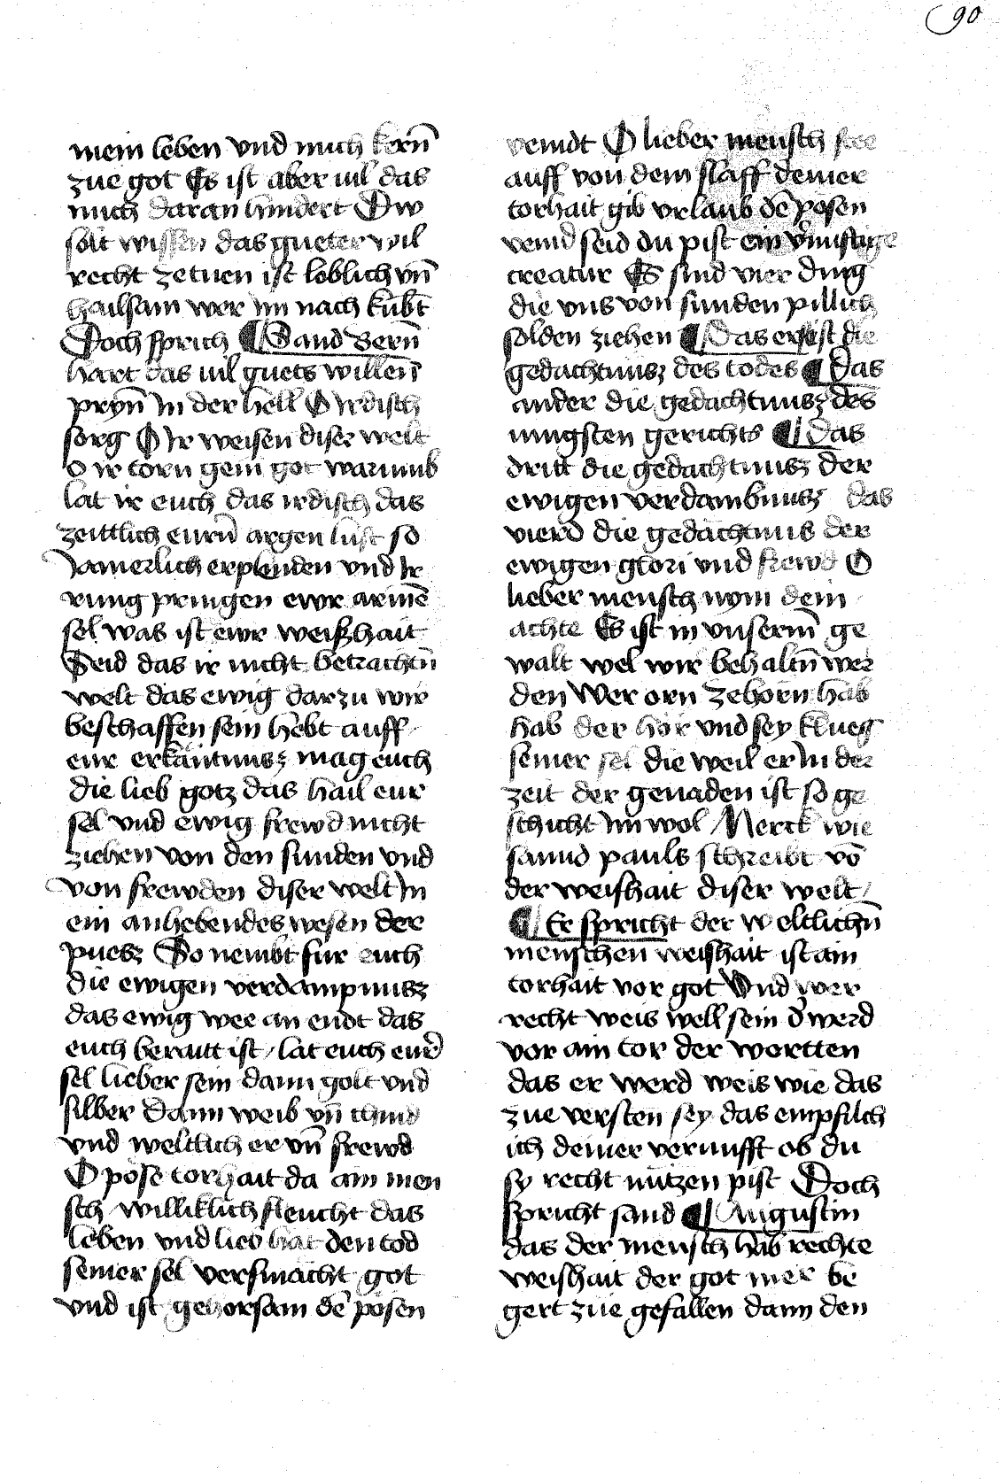 90
mein leben vnd mich kern̄
zue got Es ist aber uil das
mich daran hindert Dw
solt wissen das gueter wil
recht zetuen ist loblich vn̄
hailsam wer im nach kūbt
Doch sprich ¶ Sand Bern̄
hart das uil guets willen̄
pryn̄ In der hell O irdisch
sorg O Ir weisen diser welt
o ir torn gem got warumb
lat ir euch das irdisch das
zeittlich eurn̄ argen lust so
Jamerlich erplenden vnd Ir
rung pringen ewr armē
sel was ist ewr weiszhait
Seid das ir nicht betrachtn̄
welt das ewig darzu wir
beschaffen sein hebt auff
eur erkāntnusz mag euch
die lieb gotz das hail eur
sel vnd ewig frewd nicht
ziehen von den sunden vnd
von frewden diser welt In
ein anhebendes wesen der
puesz So nembt fur euch
die ewigen verdampnusz
das ewig wee an endt das
euch beraitt ist / lat euch eurᵈ
sel lieber sein dann golt vnd
silber dann weib vn̄ chind
vnd weltlich er vn̄ frewd
O pose torhait da ain men
sch willicklich fleucht das
leben vnd lieb hat den tod
seiner sel versmacht got
vnd ist gehorsam dē posen
veindt O lieber mensch stee
auff von dem slaff deiner
torhait gib vrlaub dē posen
veind seid du pist ein v̄nuftige
creatur Es sind vier ding
die vns von sunden pillich
solden ziehen ¶ Das erst ist die
gedachtnusz des todes ¶ Das
ander die gedachtnusz des
iungsten gerichts ¶ Das
dritt die gedachtnusz der
ewigen verdambnusz das
vierd die gedachtnus der
ewigen glori vnd frewd O
lieber mensch nym dein
achte Es ist in vnserm̄ ge
walt wel wir behaltn̄ wer
den Wer orn zehorn hab
hab der hör vnd sey klueg
seiner sel die weil er In der
zeit der genaden ist so ge
schicht im wol Merck wie
sannd pauls schreibt vō
der weishait diser welt /
¶ Er spricht der weltlichn̄
menschen weishait ist ain
torhait vor got Vnd wer
recht weis well sein d' werd
vor ain tor der wortten
das er werd weis wie das
zue versten sey das empfilch
ich deiner vernufft ob du
sy recht nutzen pist Doch
spricht sand ¶ Augustin
das der mensch hab rechte
weishait der got mer be
gert zue gefallen dann den